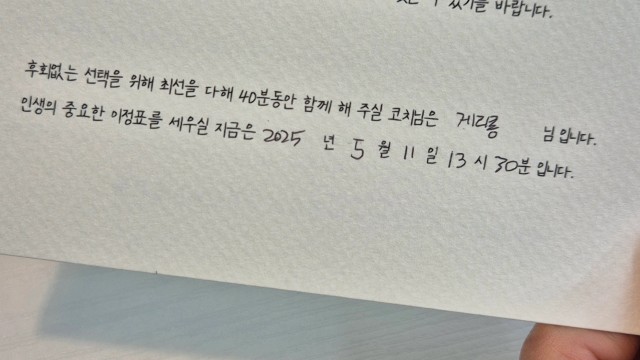 수 있기를 바랍니다.
후회없는 선택을 위해 최선을 다해 40분동안 함께 해 주실 코치님은 게리롱 님입니다.
인생의 중요한 이정표를 세우실 지금은 2025 년 5 월 11 일 13 시 30분 입니다.